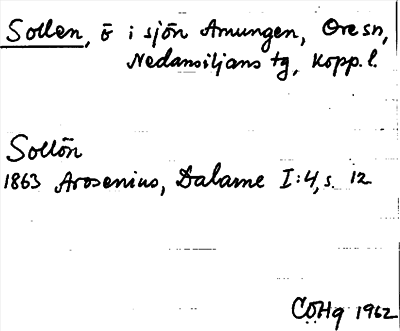 Sollen, ö i sjön Amungen, Ore sn,
Nedansiljans tg, Kopp. l.
Sollön
1863 Arosenius, Dalarne I:4, s. 12
CÖHg 1962